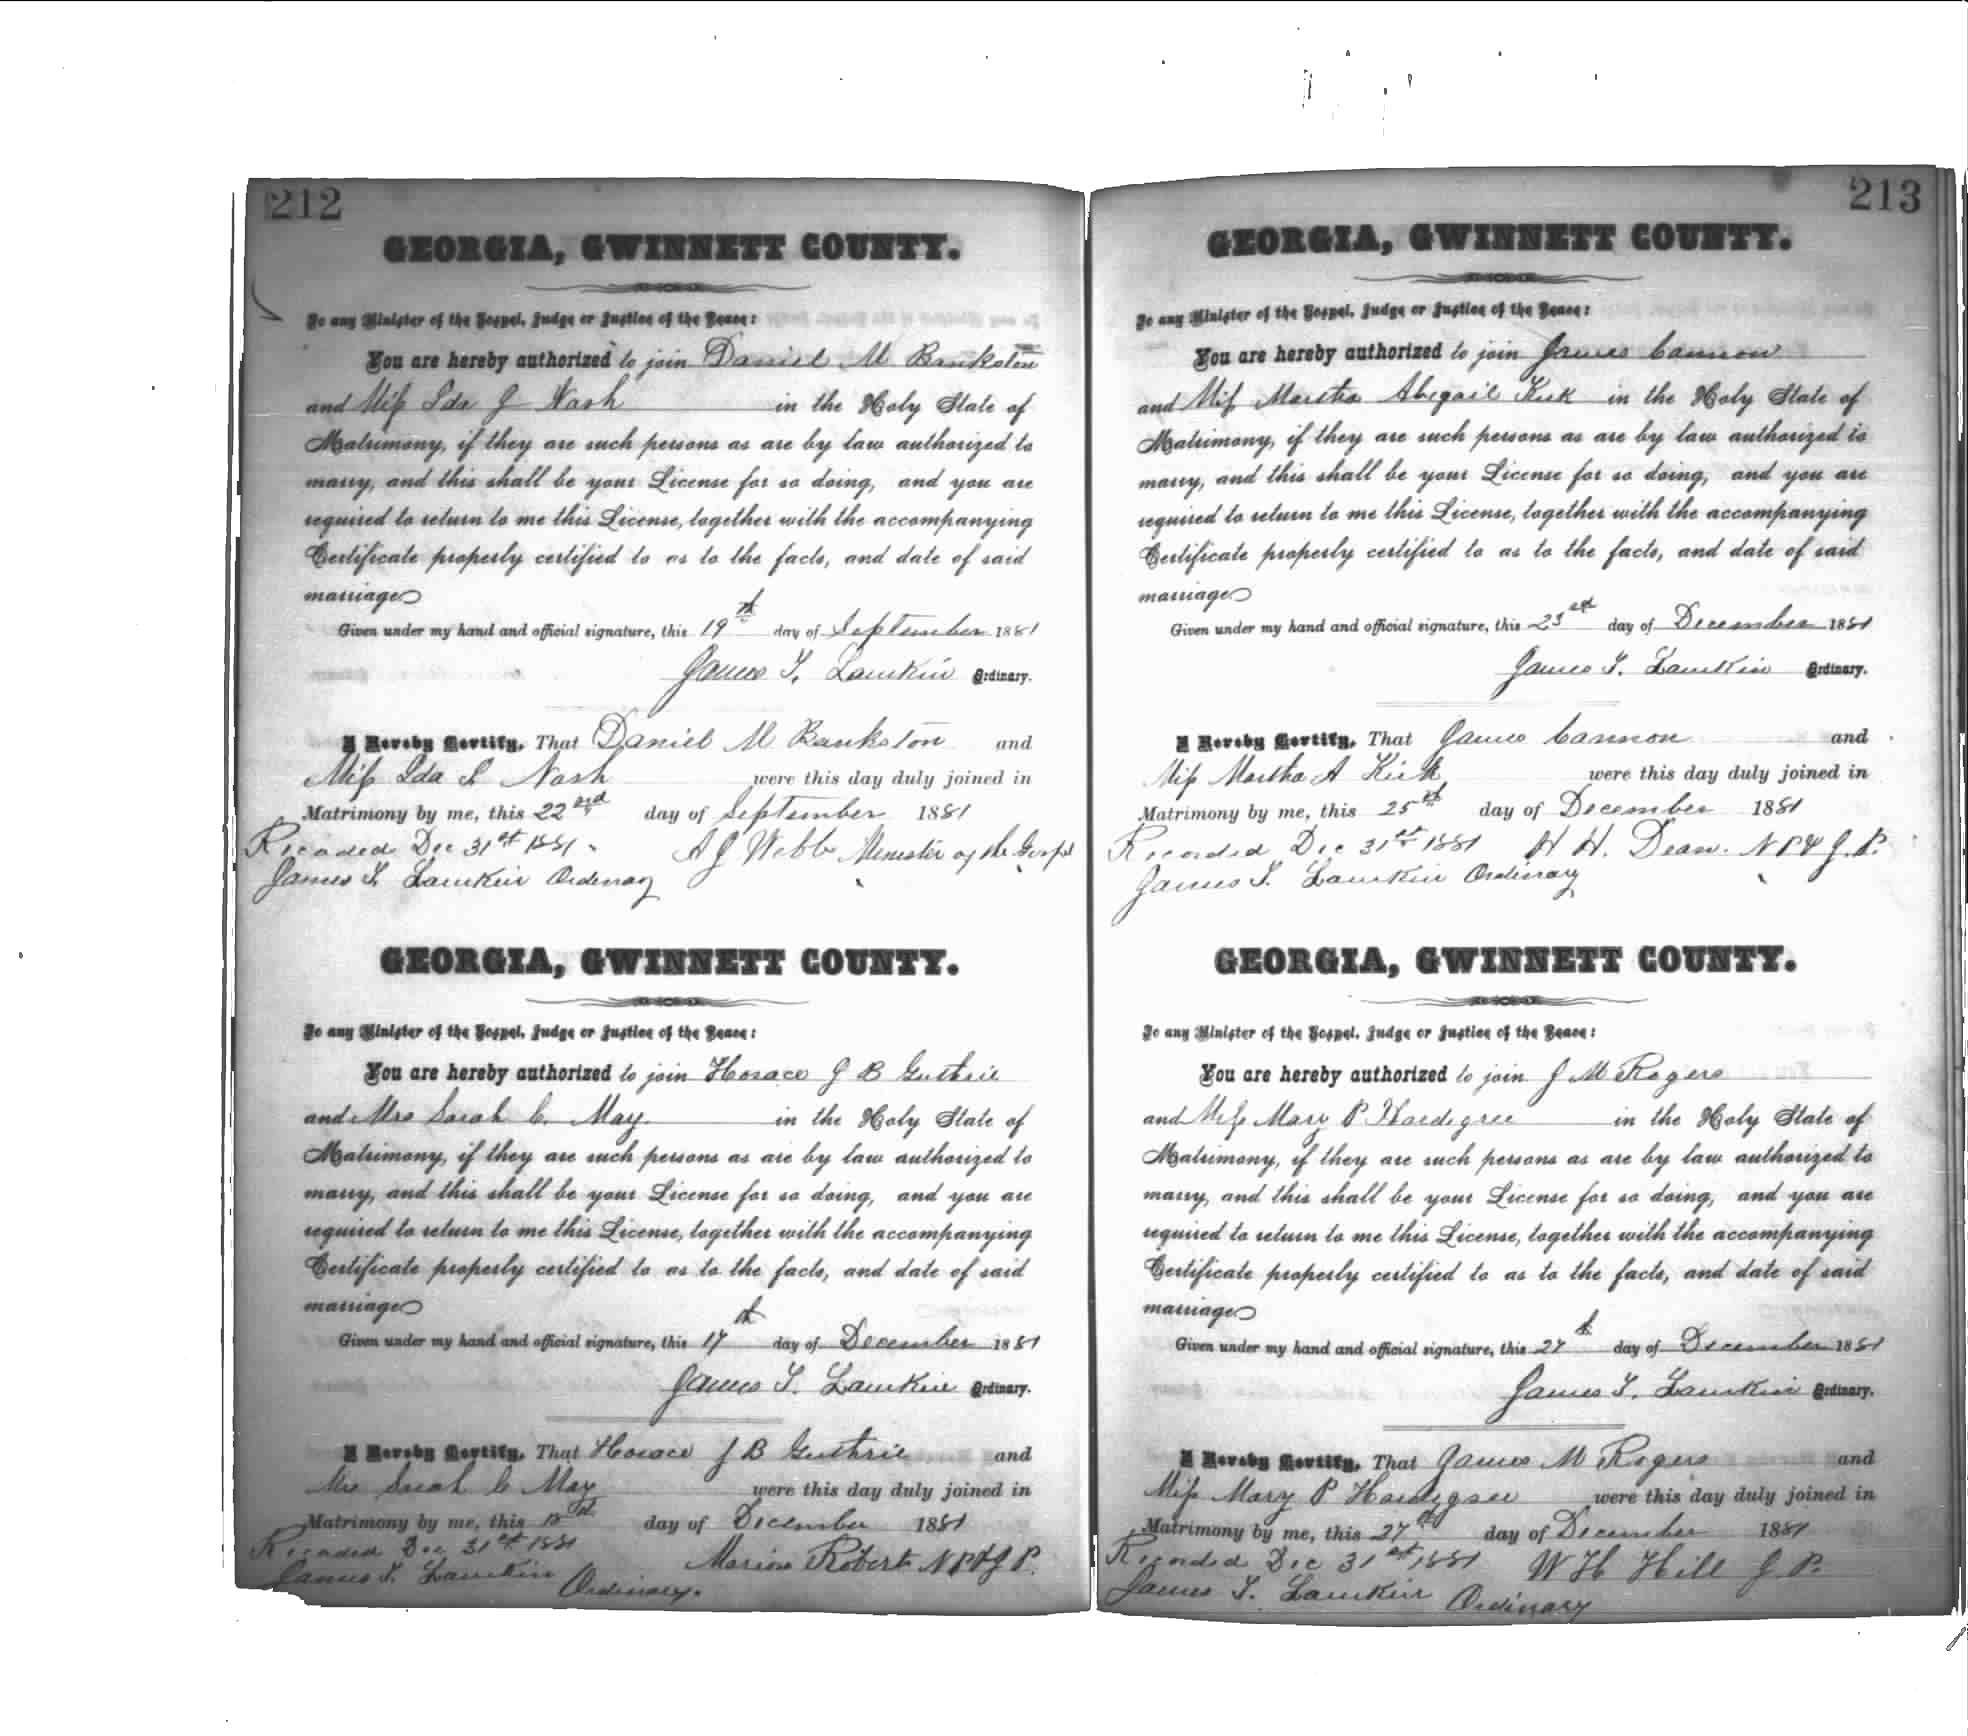 212
GEORGIA, GWINNETT COUNTY.
To any Minister of the Gospel, Judge or Justice of the Peace:
You are hereby authorized to join Daniel M Bankston
and Miss Ida J Nash in the Holy State of
Matrimony, if they are such persons as are by law authorized to
marry, and this shall be your License for so doing, and you are
required to return to me this License, together with the accompanying
Certificate properly certified to as to the facts, and date of said
marriage
Given under my hand and official signature, this 19th day of September 1881
James T. Lamkin Ordinary.
I Hereby Certify, That Daniel M Bankston and
Miss Ida J. Nash were this day duly joined in
Matrimony by me, this 22nd day of September 1881
Recorded Dec 31st 1881. A J Webb Minister of the Gospel
James T. Lamkin Ordinary
GEORGIA, GWINNETT COUNTY.
To any Minister of the Gospel, Judge or Justice of the Peace:
You are hereby authorized to join Horace J B Guthrie
and Mrs Sarah C. May in the Holy State of
Matrimony, if they are such persons as are by law authorized to
marry, and this shall be your License for so doing, and you are
required to return to me this License, together with the accompanying
Certificate properly certified to as to the facts, and date of said
marriage
Given under my hand and official signature, this 17th day of December 1881
James T. Lamkin Ordinary.
I Hereby Certify, That Horace J B Guthrie and
Mrs Sarah C May were this day duly joined in
Matrimony by me, this day of December 1881
Recorded Dec 31st 1881 Marion Roberts N P & J P.
James T. Lamkin Ordinary.
213
GEORGIA, GWINNETT COUNTY.
To any Minister of the Gospel, Judge or Justice of the Peace:
You are hereby authorized to join James Cannon
and Miss Martha Abigail Kirk in the Holy State of
Matrimony, if they are such persons as are by law authorized to
marry, and this shall be your License for so doing, and you are
required to return to me this License, together with the accompanying
Certificate properly certified to as to the facts, and date of said
marriage
Given under my hand and official signature, this 23rd day of December 1881
James T. Lamkin Ordinary.
I Hereby Certify, That James Cannon and
Miss Martha A Kirk were this day duly joined in
Matrimony by me, this 25th day of December 1881
Recorded Dec 31st 1881 H H. Dean. N P & J. P.
James T. Lamkin Ordinary
GEORGIA, GWINNETT COUNTY.
To any Minister of the Gospel, Judge or Justice of the Peace:
You are hereby authorized to join J M Rogers
and Miss Mary P Hardegree in the Holy State of
Matrimony, if they are such persons as are by law authorized to
marry, and this shall be your License for so doing, and you are
required to return to me this License, together with the accompanying
Certificate properly certified to as to the facts, and date of said
marriage
Given under my hand and official signature, this 27th day of December 1881
James T. Lamkin Ordinary.
I Hereby Certify, That James M Rogers and
Miss Mary P Hardegree were this day duly joined in
Matrimony by me, this 27th day of December 1881
Recorded Dec 31st 1881 W H Hill J P.
James T. Lamkin Ordinary